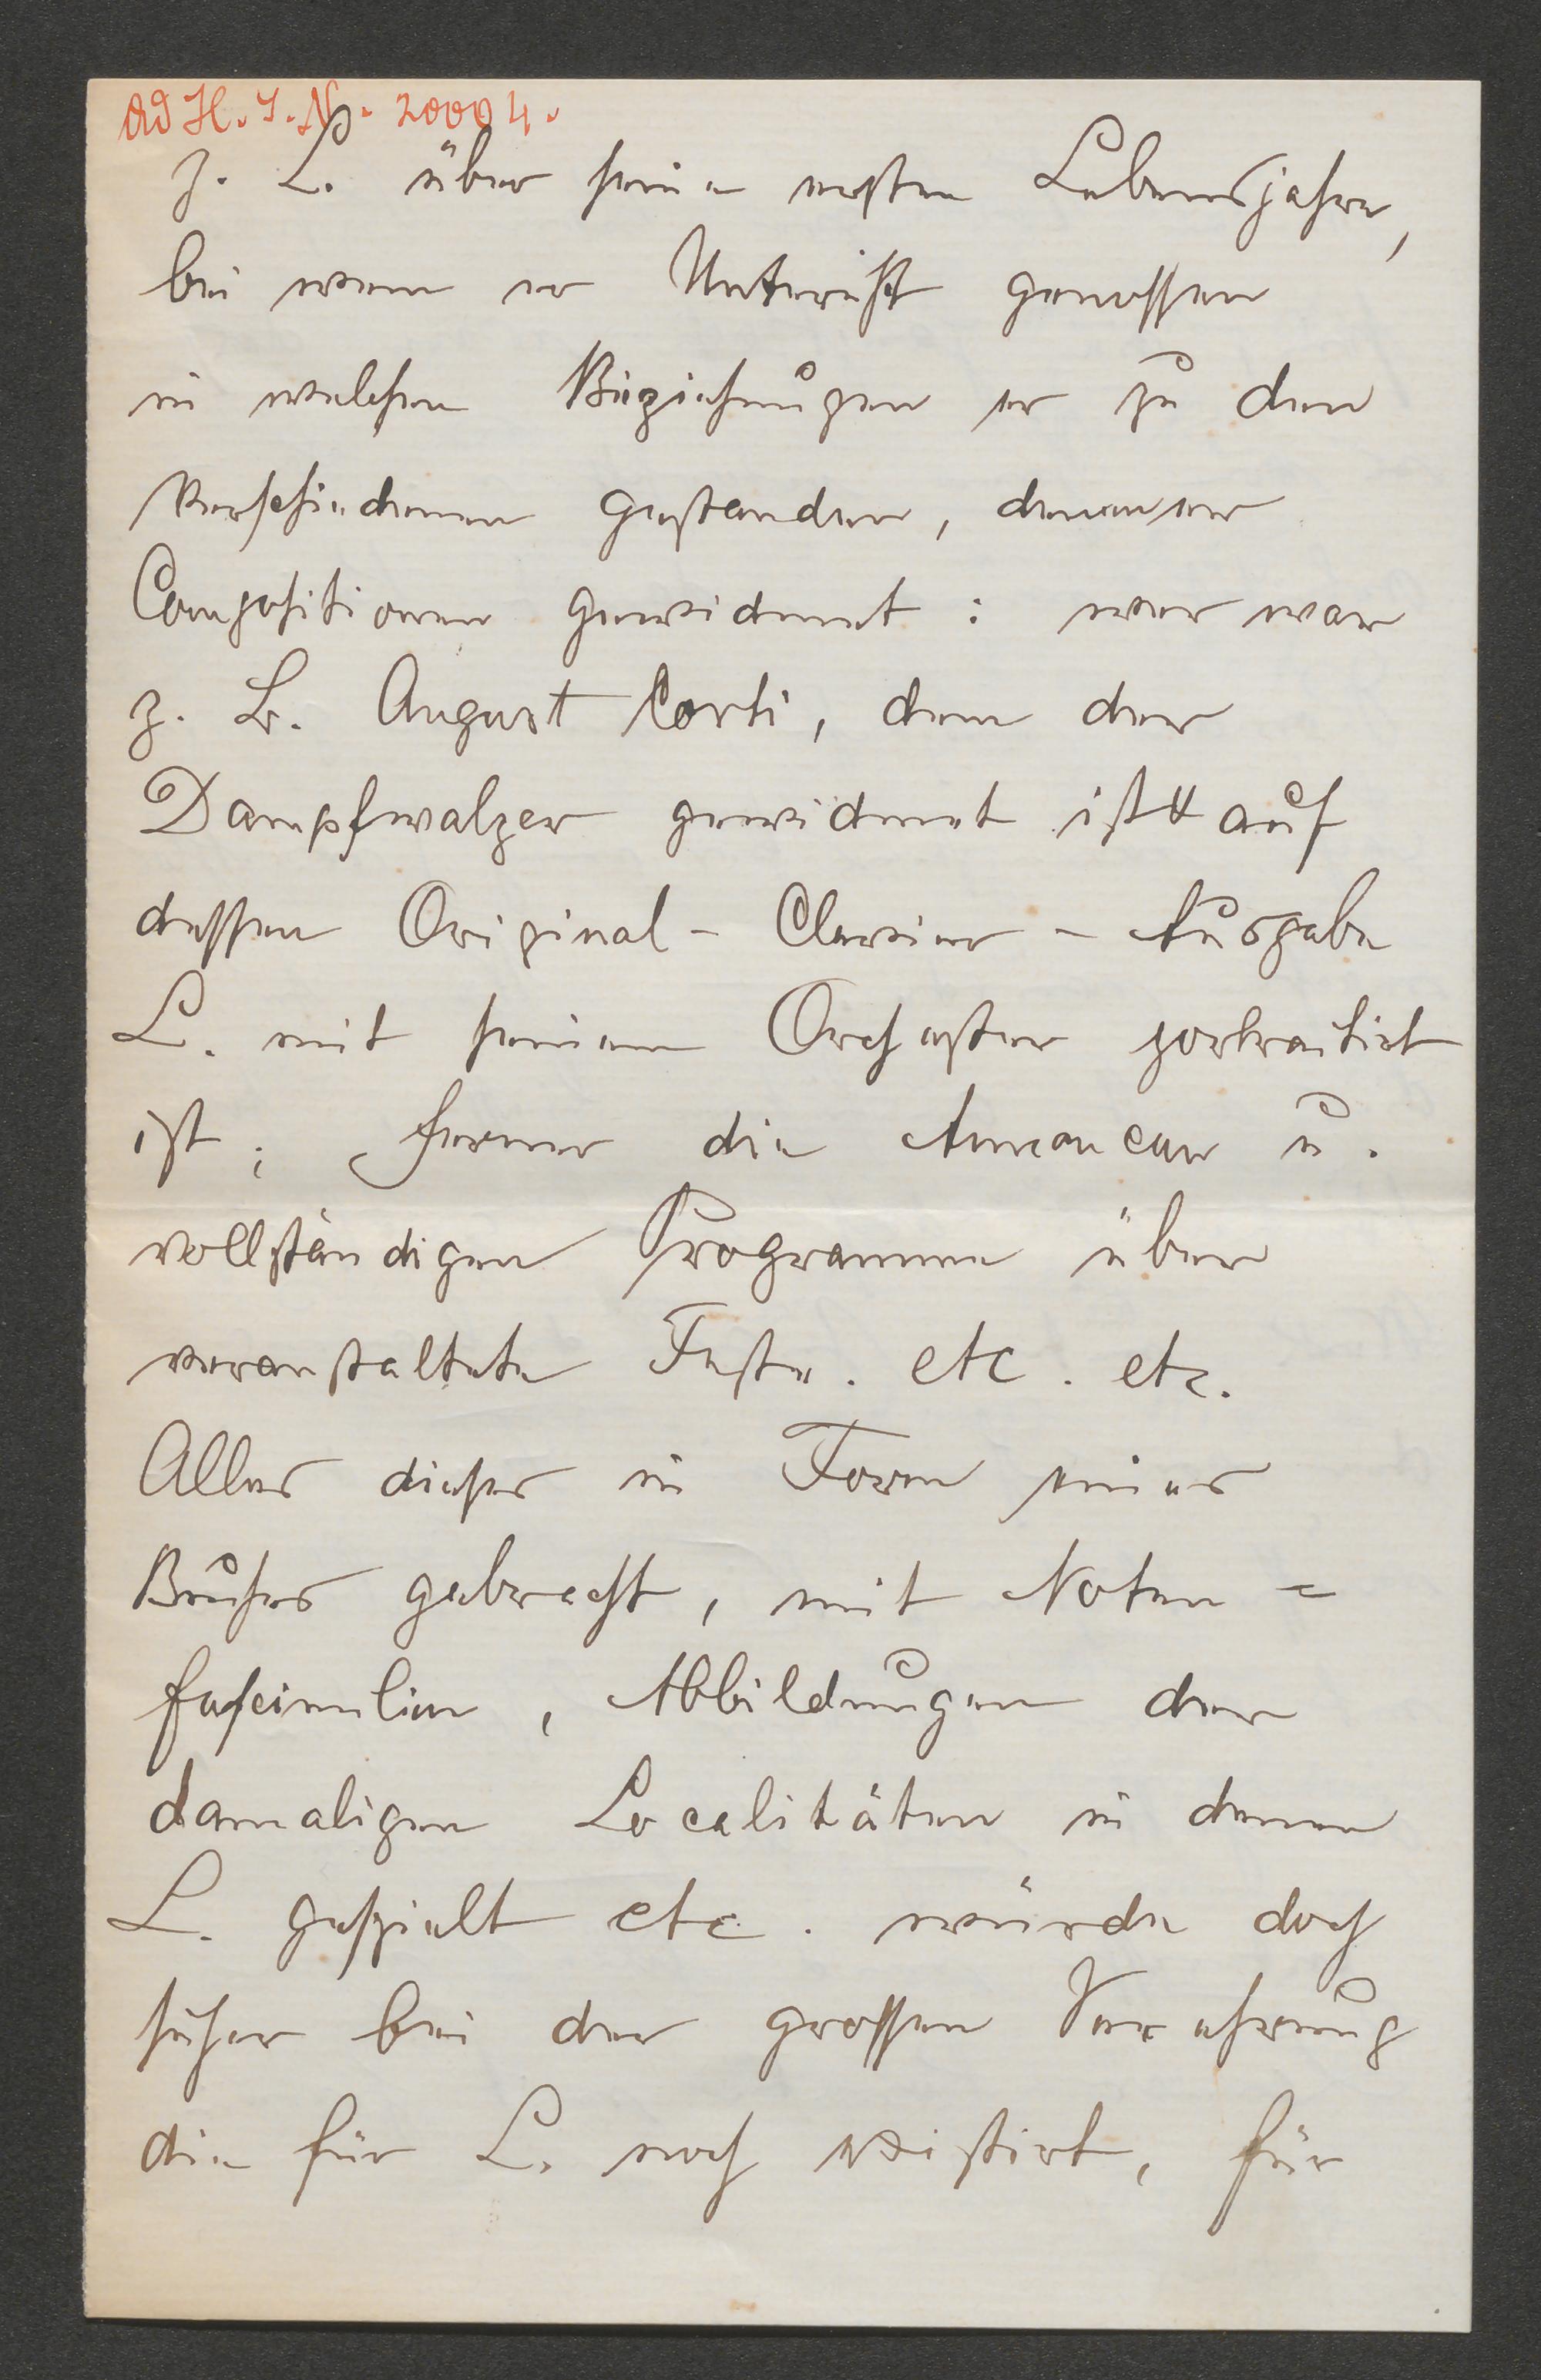 Ad H. I. N. 20004.
J. L. über seine ersten Lebensjahre,
bei wem er Unterricht genossen
in welchen Beziehungen er zu den
Verschiedenen gestanden, denen er
Compositionen gewidmet: wer war
z. B. August Corti, dem der
Dampfwalzer gewidmet ist & auf
dessen Original - Clavier - Ausgabe
L. mit seinem Orchester portraitirt
ist; ferner die Annoncen u.
vollständigen Programme über
veranstaltete Feste. etc. etc.
Alles dieses in Form eines
Buches gebracht, mit Noten =
fascimilien, Abbildungen der
damaligen Localitäten in denen
L. gespielt etc. würde doch
sicher bei der grossen Verehrung
die für L. noch existirt, für